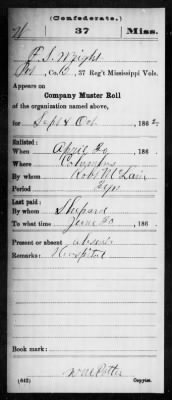 (Confederate.)
W 37 Miss.
F. S. Wright
Co. B, 37 Reg't Mississippi Vols.
Appears on
Company Muster Roll
of the organization named above,
for Sept & Oct, 1862.
Enlisted:
When April 29, 186
Where Columbus
By whom Robt McLain
Period 2 yrs
Last paid:
By whom Shepard
To what time June 30, 186
Present or absent absent
Remarks: Hospital
Book mark:
(642) Copyist.